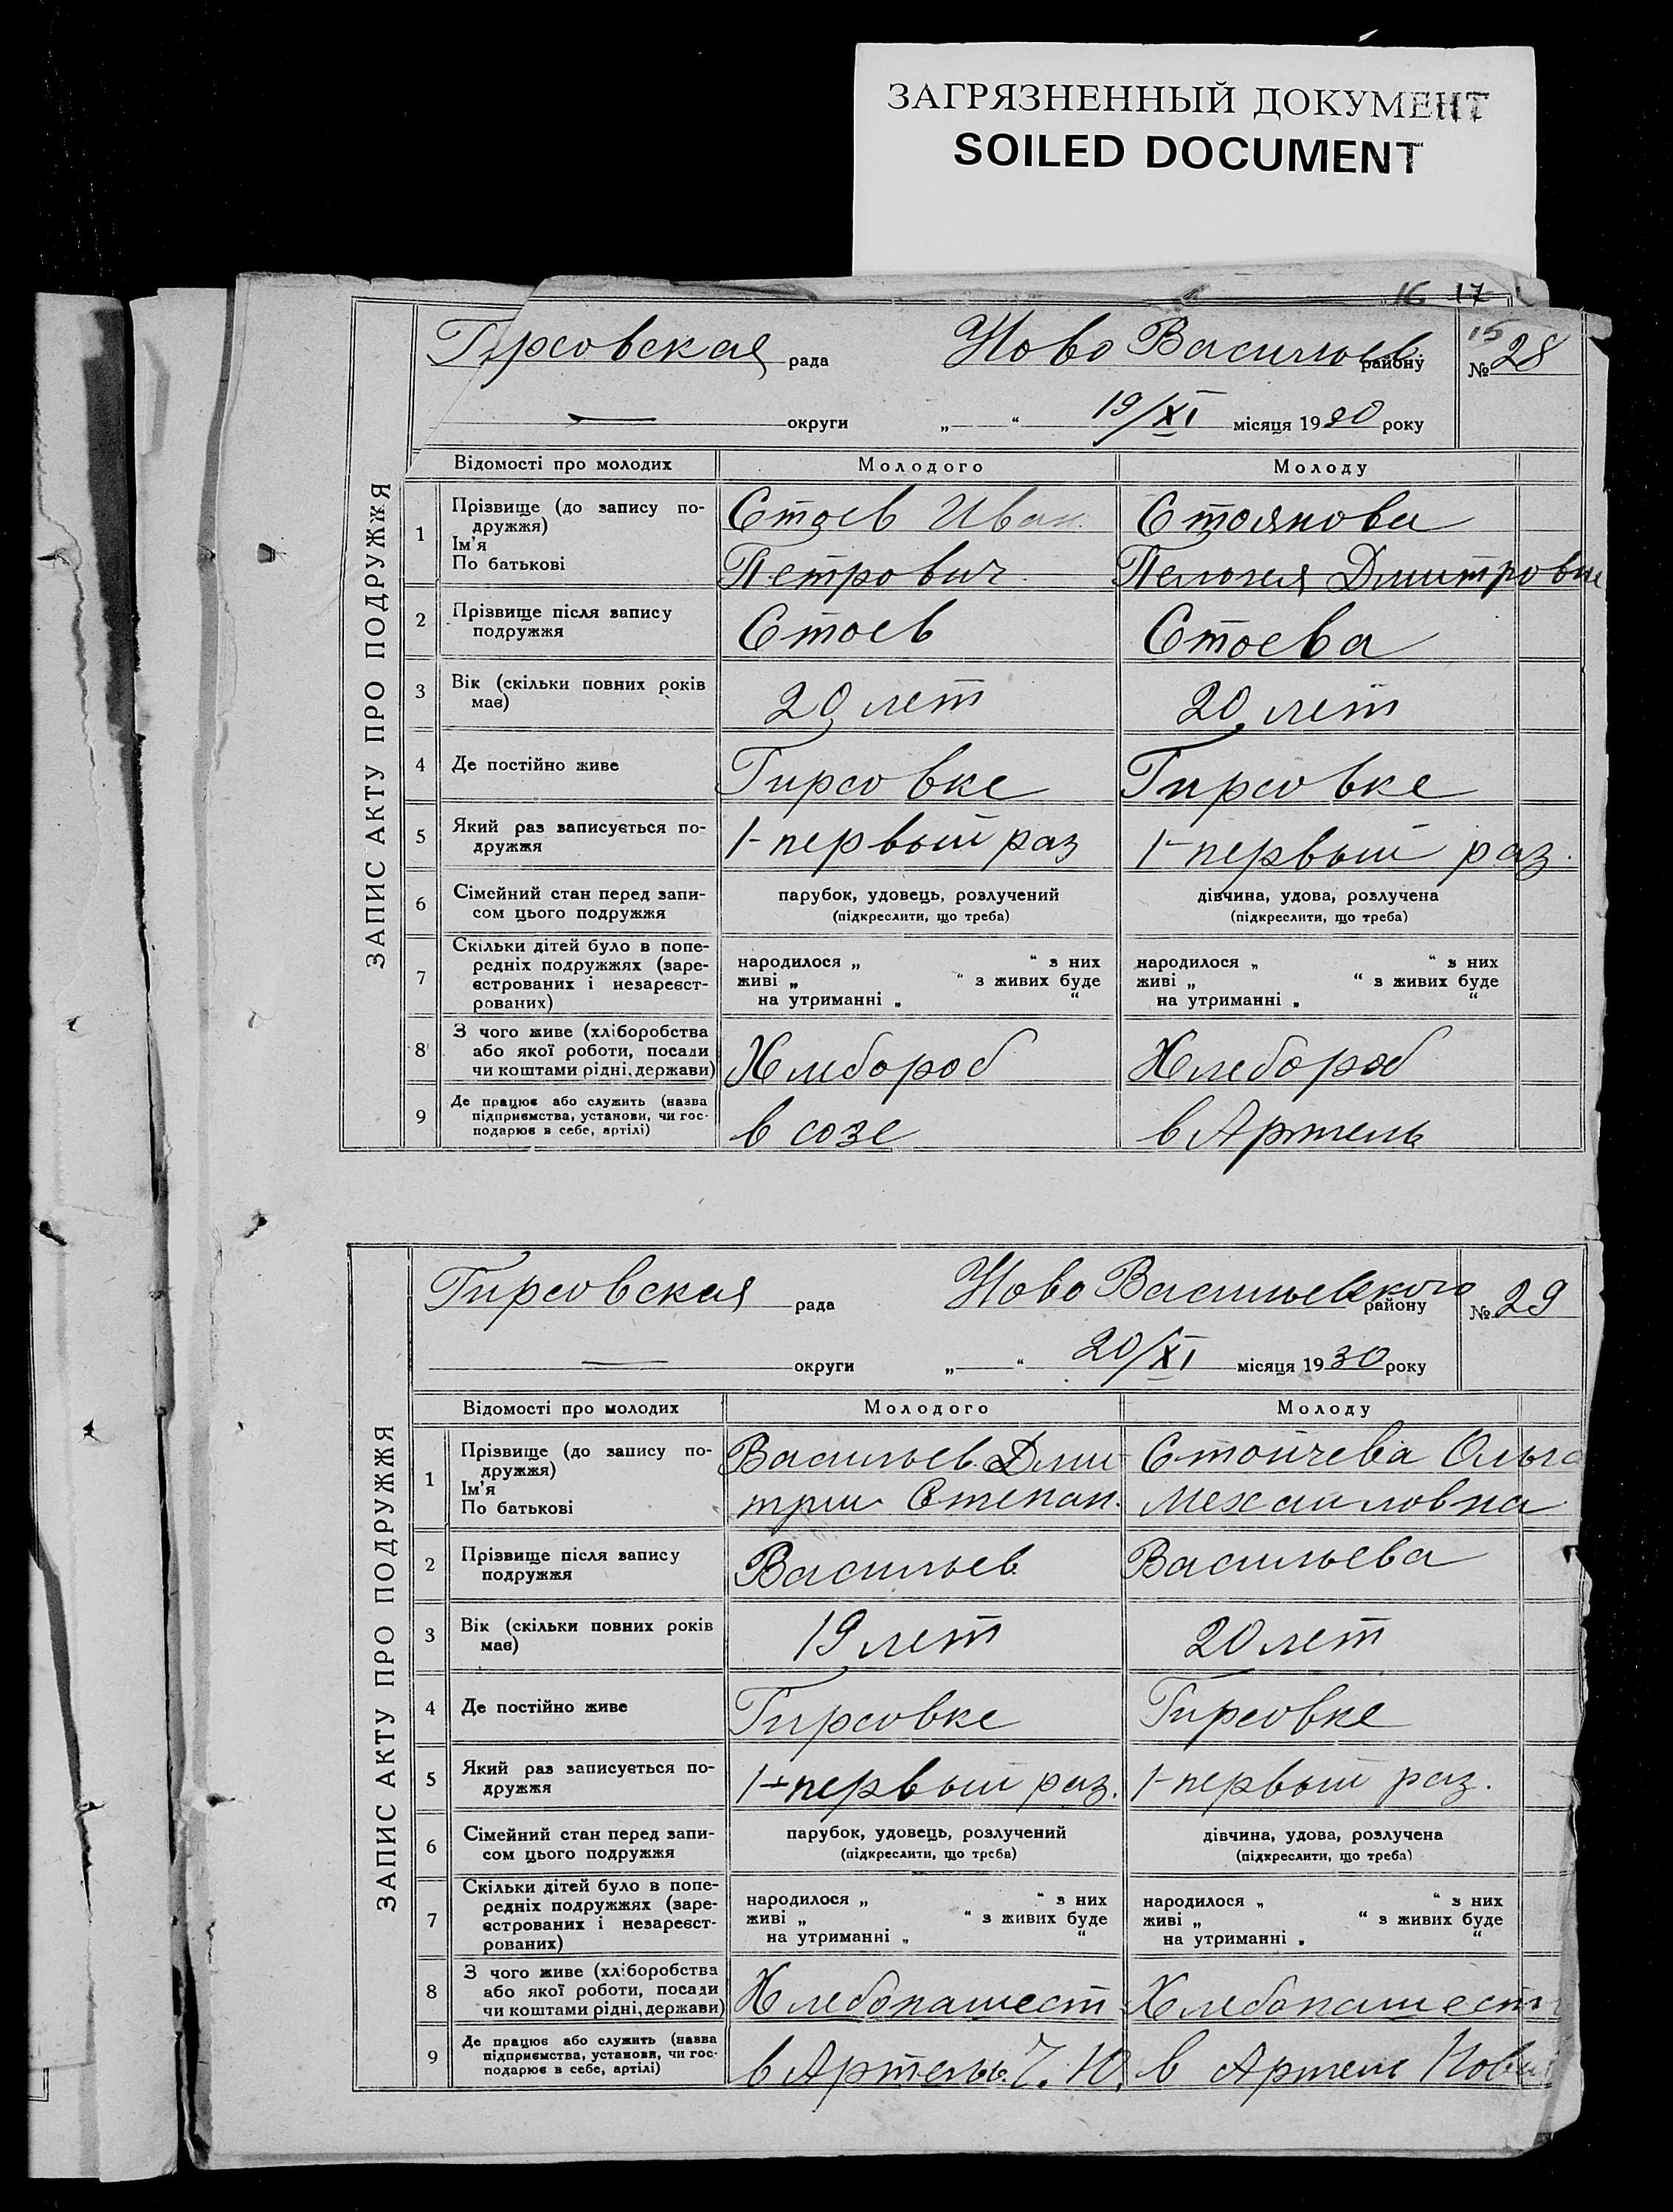 ЗАГРЯЗНЕННЫЙ ДОКУМЕНТ
SOILED DOCUMENT
16 17
15
Гирсовская рада Ново Васильев. району № 28
округи „ “ 19/XI місяця 1930 року
ЗАПИС АКТУ ПРО ПОДРУЖЖЯ
Відомості про молодих Молодого Молоду
1 Прізвище (до запису по-
дружжя)
Ім'я
По батькові
Стоев Иван Стоянова
Петрович Пелагея Дмитровн
2 Прізвище після запису
подружжя
Стоев Стоева
3 Вік (скільки повних років
має)
20 лет 20 лет
4 Де постійно живе Гирсовке Гирсовке
5 Який раз записується по-
дружжя
1-первый раз 1-первый раз.
6 Сімейний стан перед запи- парубок, удовець, розлучений дівчина, удова, розлучена
сом цього подружжя (підкреслити, що треба) (підкреслити, що треба)
7 Скільки дітей було в попе-
редніх подружжях (заре-
єстрованих і незареєст-
рованих)
народилося „ “ з них народилося „ “ з них
живі „ “ з живих буде живі „ “ з живих буде
на утриманні „ “ на утриманні „ “
8 З чого живе (хліборобства
або якої роботи, посади
чи коштами рідні, держави)
Хлебороб Хлебороб
9 Де працює або служить (назва
підприємства, установи, чи гос-
подарює в себе, артілі)
в созе в Артель
Гирсовская рада Ново Васильевского району № 29
округи „ “ 20/XI місяця 1930 року
ЗАПИС АКТУ ПРО ПОДРУЖЖЯ
Відомості про молодих Молодого Молоду
1 Прізвище (до запису по-
дружжя)
Ім'я
По батькові
Васильев Дми- Стойчева Ольга
трии Степан. Мехаиловна
2 Прізвище після запису
подружжя
Васильев Васильева
3 Вік (скільки повних років
має)
19 лет 20 лет
4 Де постійно живе Гирсовке Гирсовке
5 Який раз записується по-
дружжя
1-первый раз. 1-первый раз.
6 Сімейний стан перед запи- парубок, удовець, розлучений дівчина, удова, розлучена
сом цього подружжя (підкреслити, що треба) (підкреслити, що треба)
7 Скільки дітей було в попе-
редніх подружжях (заре-
єстрованих і незареєст-
рованих)
народилося „ “ з них народилося „ “ з них
живі „ “ з живих буде живі „ “ з живих буде
на утриманні „ “ на утриманні „ “
8 З чого живе (хліборобства
або якої роботи, посади
чи коштами рідні, держави)
Хлебопашест Хлебопашест
9 Де працює або служить (назва
підприємства, установи, чи гос-
подарює в себе, артілі)
в Артель в Артели